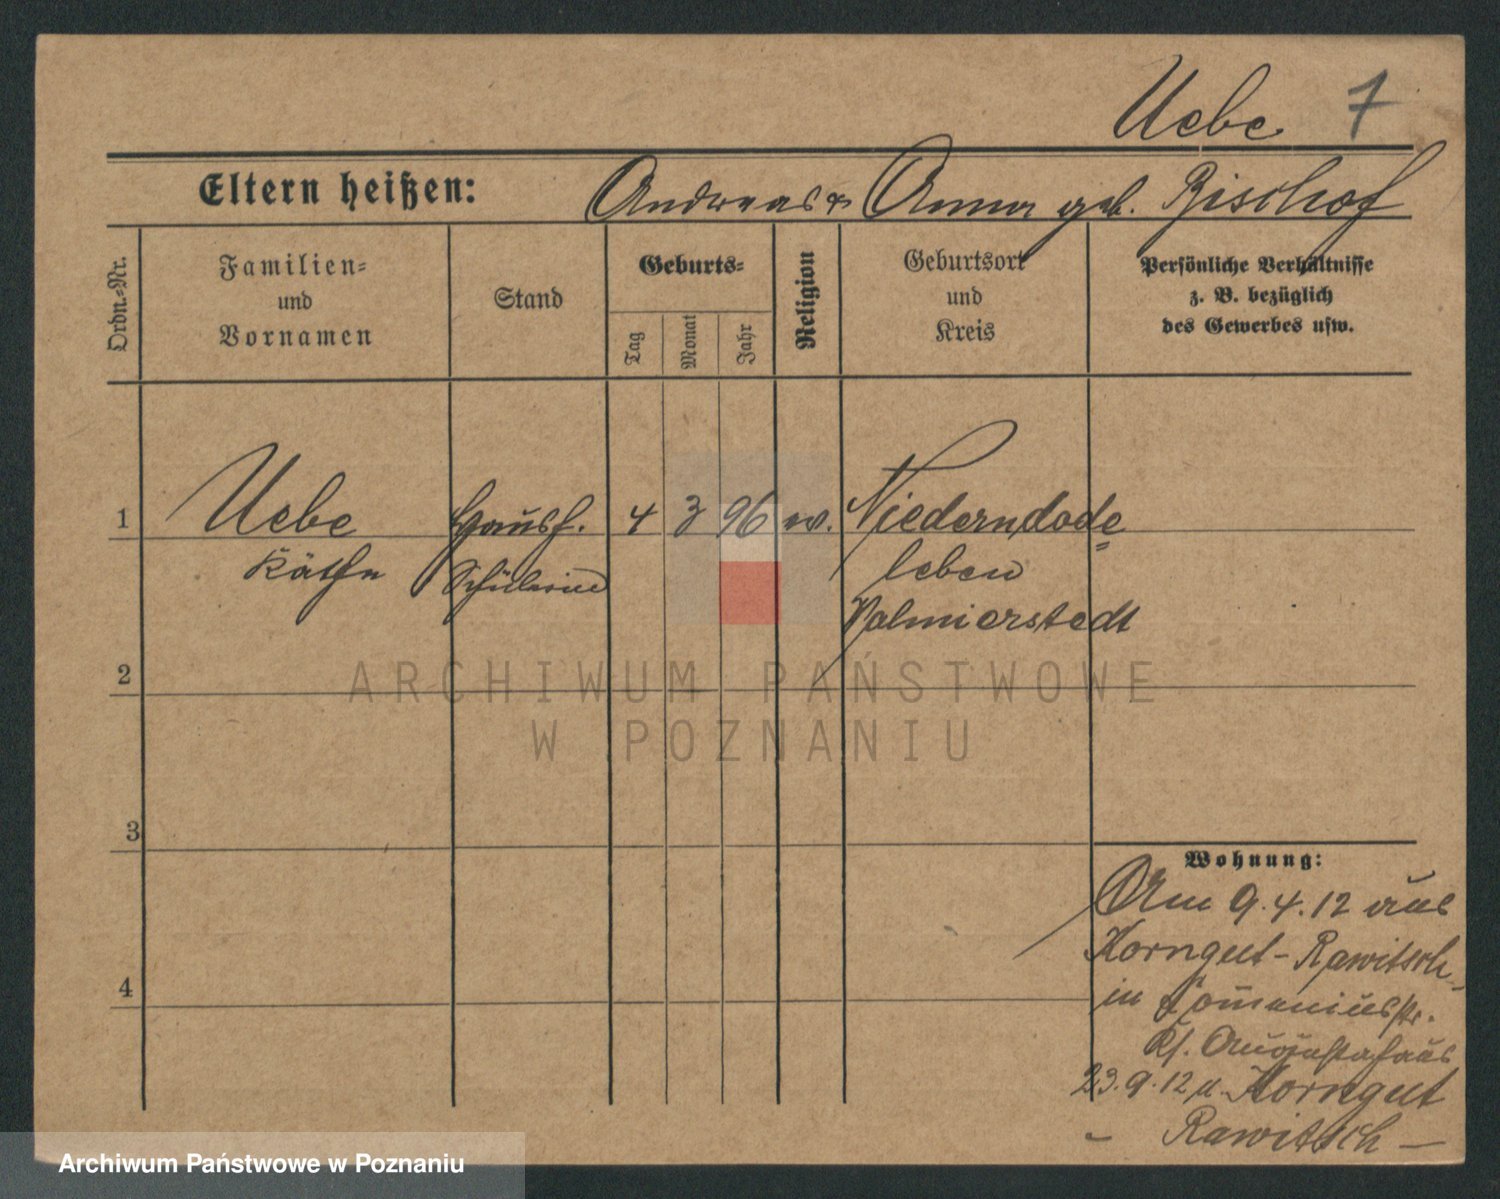 Uebe 7
Eltern heißen: Andreas & Anna geb. Bischof
Ordn.-Nr.
Familien-
und
Vornamen
Stand
Geburts-
Tag
Monat
Jahr
Religion
Geburtsort
und
Kreis
Persönliche Verhältnisse
z. B. bezüglich
des Gewerbes usw.
1 Uebe Haush. 4 3 96 ev. Niederndode
Käthe Schülerin leben
Wolmierstedt
2
3
4
Wohnung:
Am 9.4.12 aus
Korngut-Rawitsch
in Comeniusstr.
Augustahaus
23.9.12 n. Korngut
- Rawitsch -
ARCHIWUM PAŃSTWOWE
W POZNANIU
Archiwum Państwowe w Poznaniu